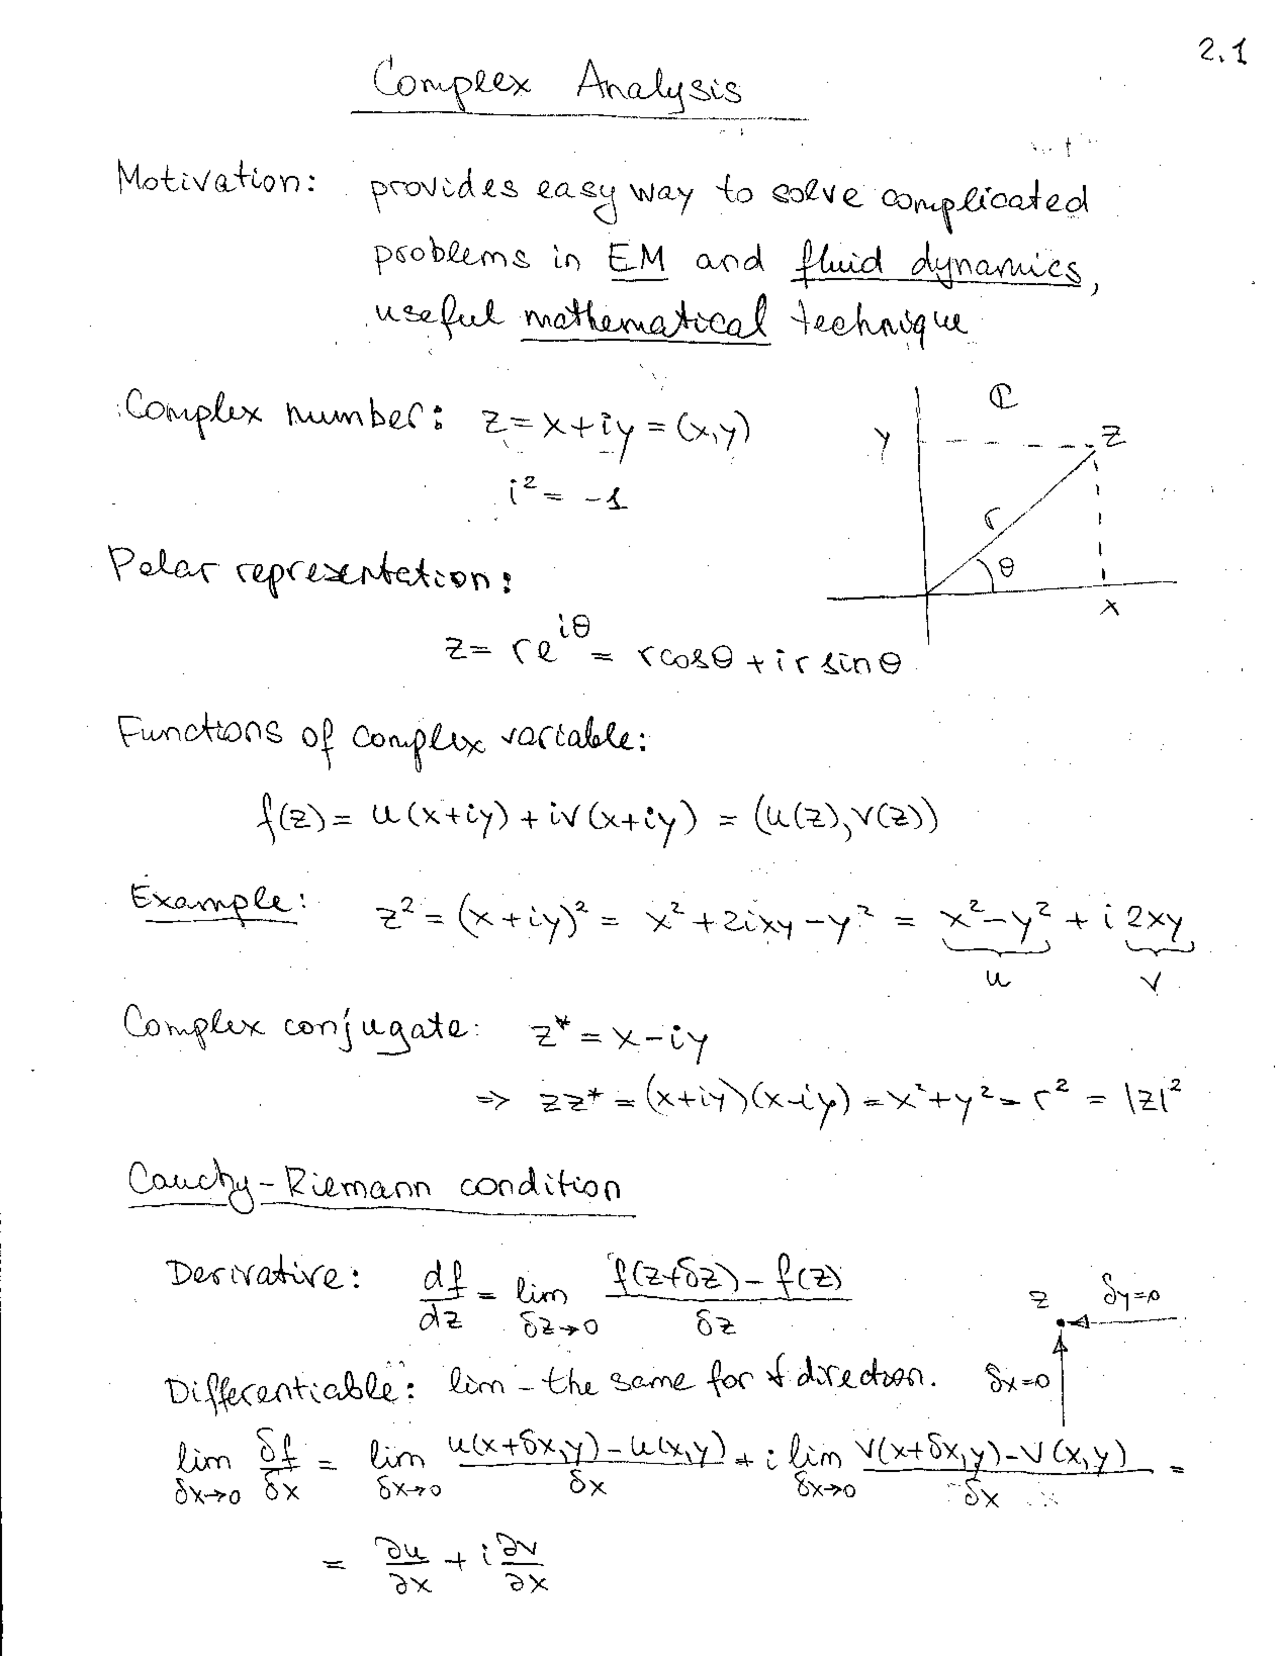 2.1
Complex Analysis
Motivation: provides easy way to solve complicated
problems in EM and fluid dynamics,
useful mathematical technique
Complex number: z = x+iy = (x,y)
i² = -1
ℂ
y
z
r
θ
x
Polar representation:
z = re^{iθ} = rcosθ + i r sinθ
Functions of complex variable:
f(z) = u(x+iy) + iv(x+iy) = (u(z), v(z))
Example: z² = (x+iy)² = x² + 2ixy - y² = x² - y² + i 2xy
u v
Complex conjugate: z* = x - iy
⇒ zz* = (x+iy)(x-iy) = x² + y² = r² = |z|²
Cauchy-Riemann condition
Derivative: df/dz = lim_{δz→0} (f(z+δz) - f(z))/δz
z δy=0
Differentiable: lim - the same for ∀ direction. δx=0
lim_{δx→0} δf/δx = lim_{δx→0} (u(x+δx,y) - u(x,y))/δx + i lim_{δx→0} (v(x+δx,y) - v(x,y))/δx =
= ∂u/∂x + i ∂v/∂x